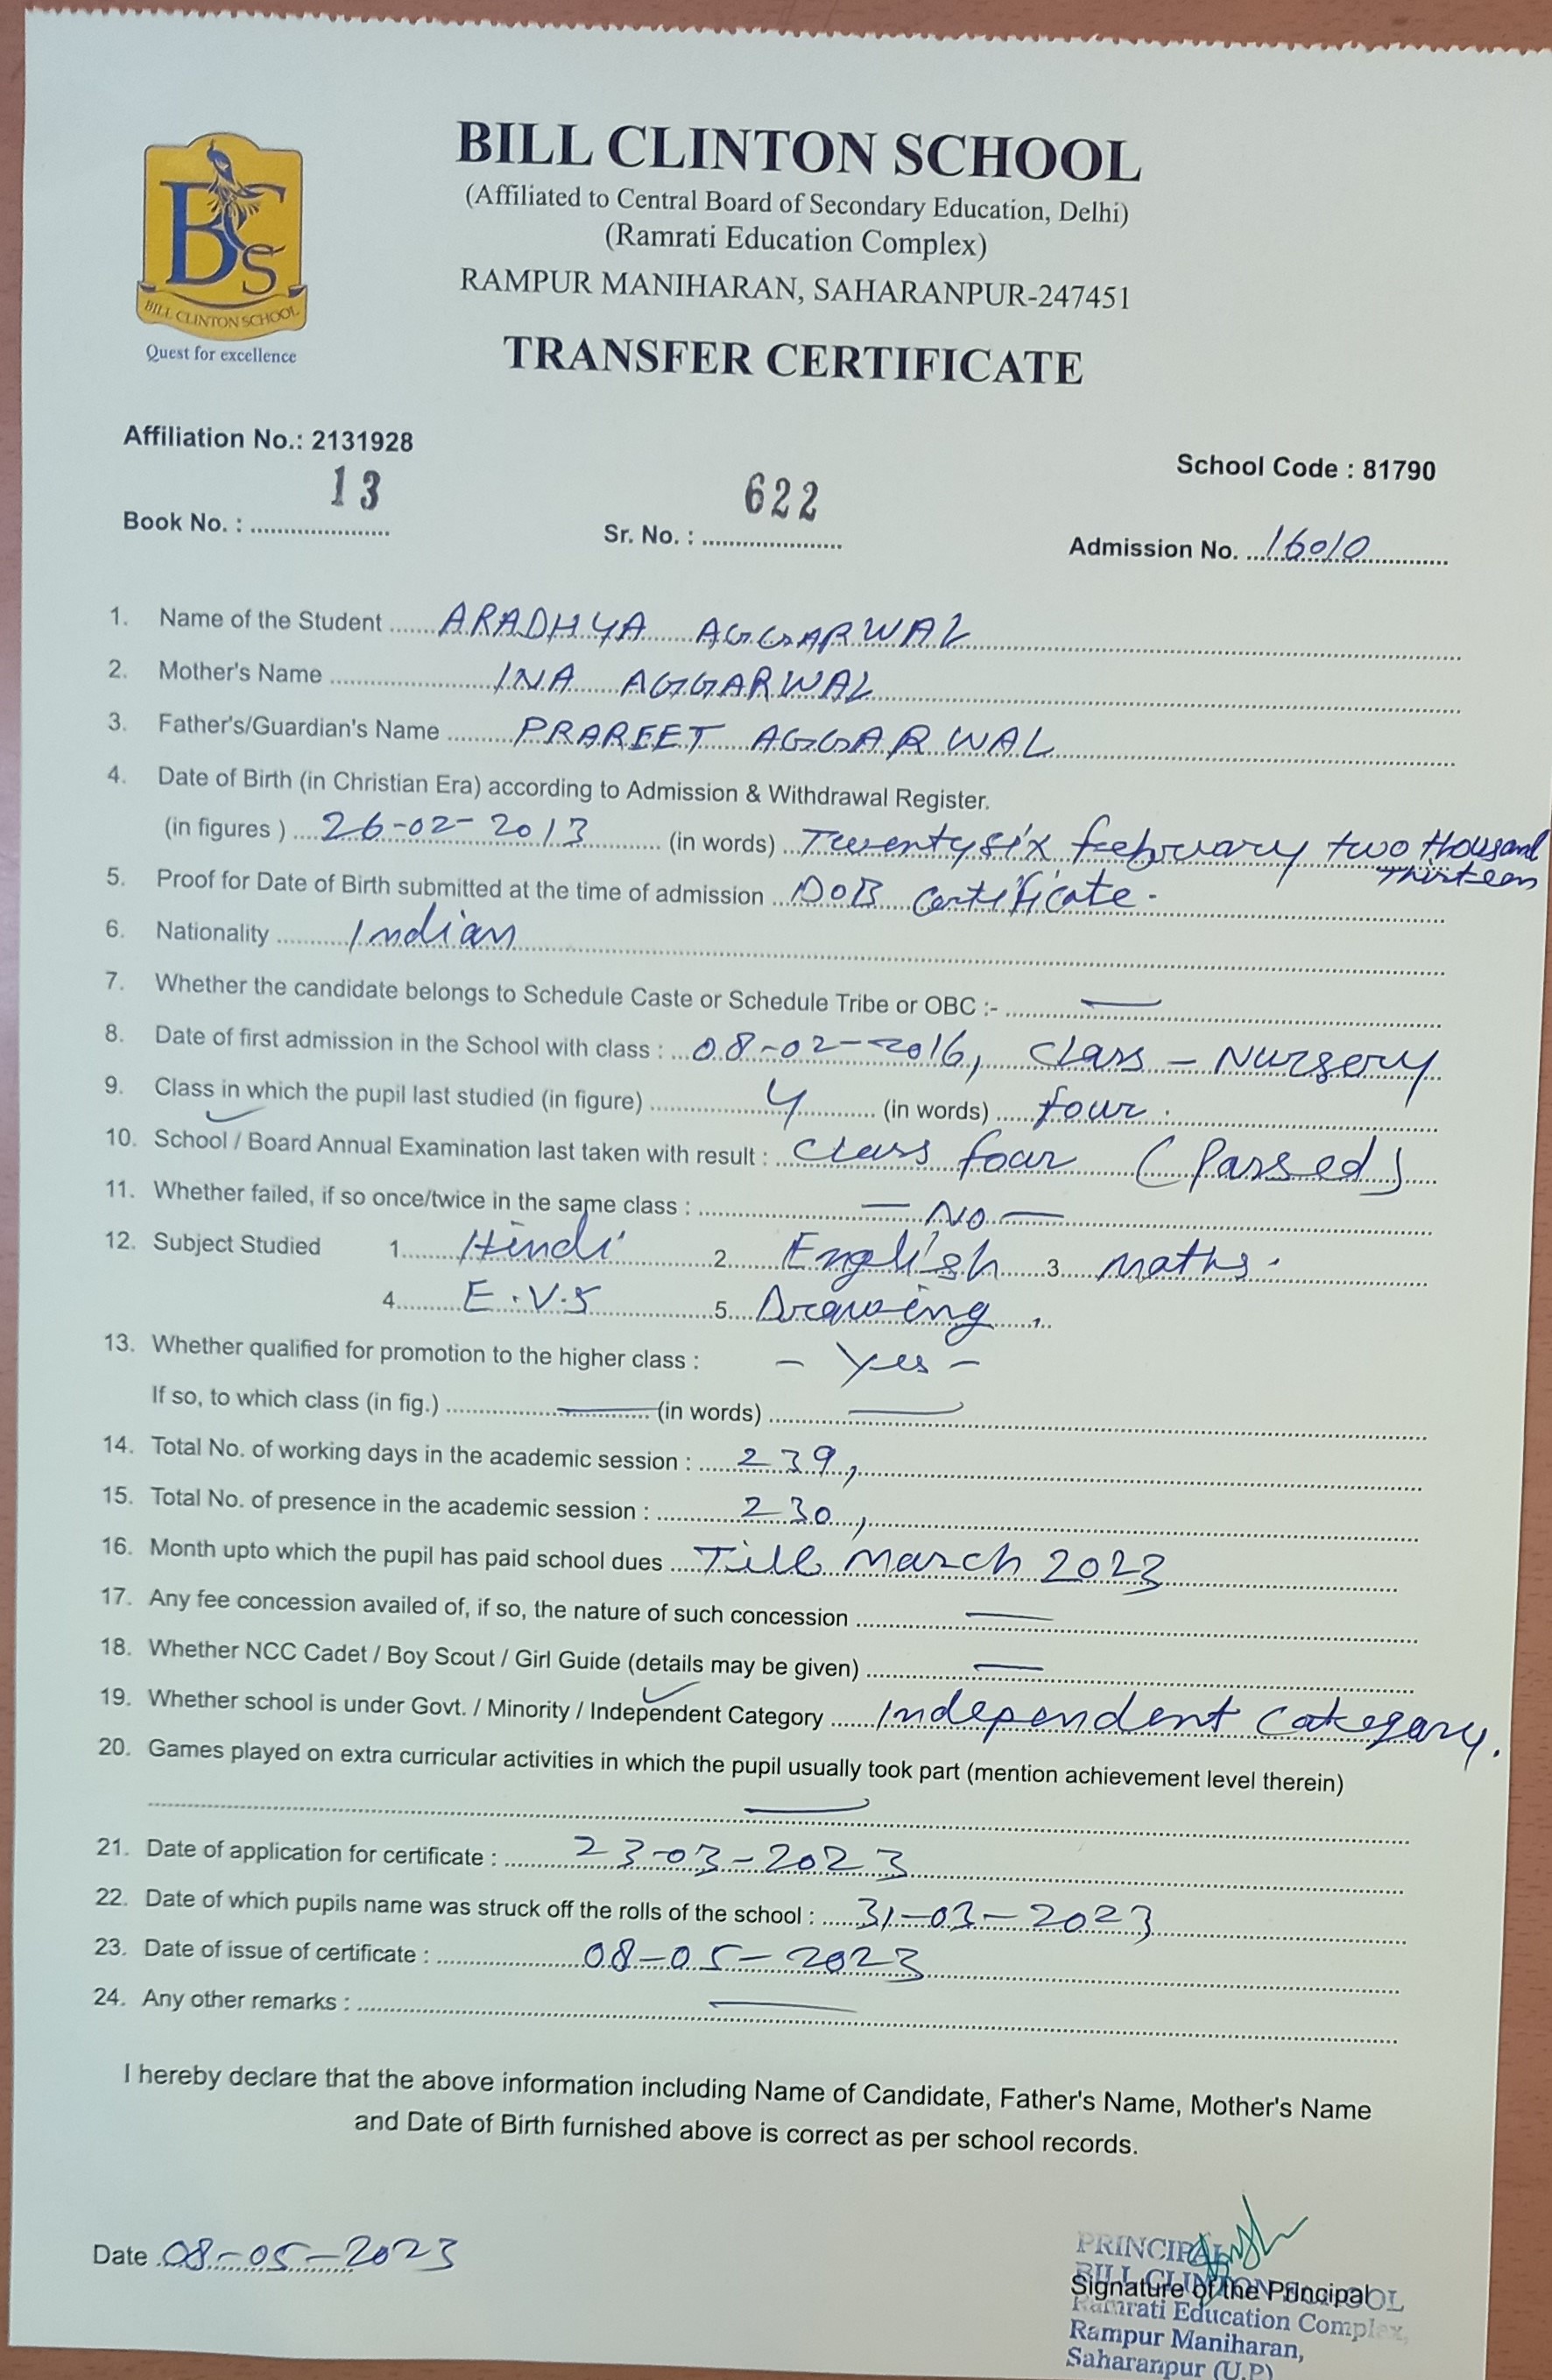 BILL CLINTON SCHOOL
(Affiliated to Central Board of Secondary Education, Delhi)
(Ramrati Education Complex)
RAMPUR MANIHARAN, SAHARANPUR-247451
BCS
BILL CLINTON SCHOOL
Quest for excellence
TRANSFER CERTIFICATE
Affiliation No.: 2131928
School Code : 81790
Book No. : 13 Sr. No. : 622 Admission No. 16010
1. Name of the Student ARADHYA AGGARWAL
2. Mother's Name INA AGGARWAL
3. Father's/Guardian's Name PRAREET AGGARWAL
4. Date of Birth (in Christian Era) according to Admission & Withdrawal Register.
(in figures ) 26-02-2013 (in words) Twenty six february two thousand
thirteen
5. Proof for Date of Birth submitted at the time of admission DOB Certificate.
6. Nationality Indian
7. Whether the candidate belongs to Schedule Caste or Schedule Tribe or OBC :- —
8. Date of first admission in the School with class : 08-02-2016, Class – Nursery
9. Class in which the pupil last studied (in figure) 4 (in words) four.
10. School / Board Annual Examination last taken with result : Class four (Passed)
11. Whether failed, if so once/twice in the same class : — No —
12. Subject Studied 1. Hindi 2. English 3. maths.
4. E.V.S 5. Drawing,
13. Whether qualified for promotion to the higher class : – Yes –
If so, to which class (in fig.) — (in words) —
14. Total No. of working days in the academic session : 239,
15. Total No. of presence in the academic session : 230,
16. Month upto which the pupil has paid school dues Till March 2023
17. Any fee concession availed of, if so, the nature of such concession —
18. Whether NCC Cadet / Boy Scout / Girl Guide (details may be given) —
19. Whether school is under Govt. / Minority / Independent Category Independent Category.
20. Games played on extra curricular activities in which the pupil usually took part (mention achievement level therein)
—
21. Date of application for certificate : 23-03-2023
22. Date of which pupils name was struck off the rolls of the school : 31-03-2023
23. Date of issue of certificate : 08-05-2023
24. Any other remarks : —
I hereby declare that the above information including Name of Candidate, Father's Name, Mother's Name
and Date of Birth furnished above is correct as per school records.
Date 08-05-2023
PRINCIPAL
BILL CLINTON SCHOOL
Signature of the Principal
Ramrati Education Complex,
Rampur Maniharan,
Saharanpur (U.P)